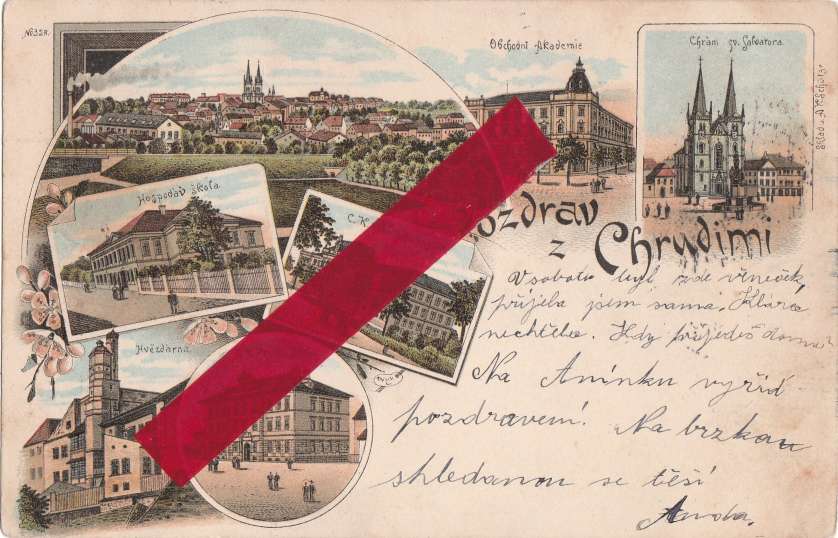 No 328.
Obchodní Akademie
Chrám sv. Salvatora.
Sklad u A. Kačhota
Hospodář škola
C. K.
ozdrav
z Chrudimi
Hvězdárna
V sobotu byl zde věneček
přijela jsem sama. Klára
nechtěla. Kdy přijedeš domů?
Na Anínku vyřiď
pozdravení. Na brzkou
shledanou se těší
Anda.